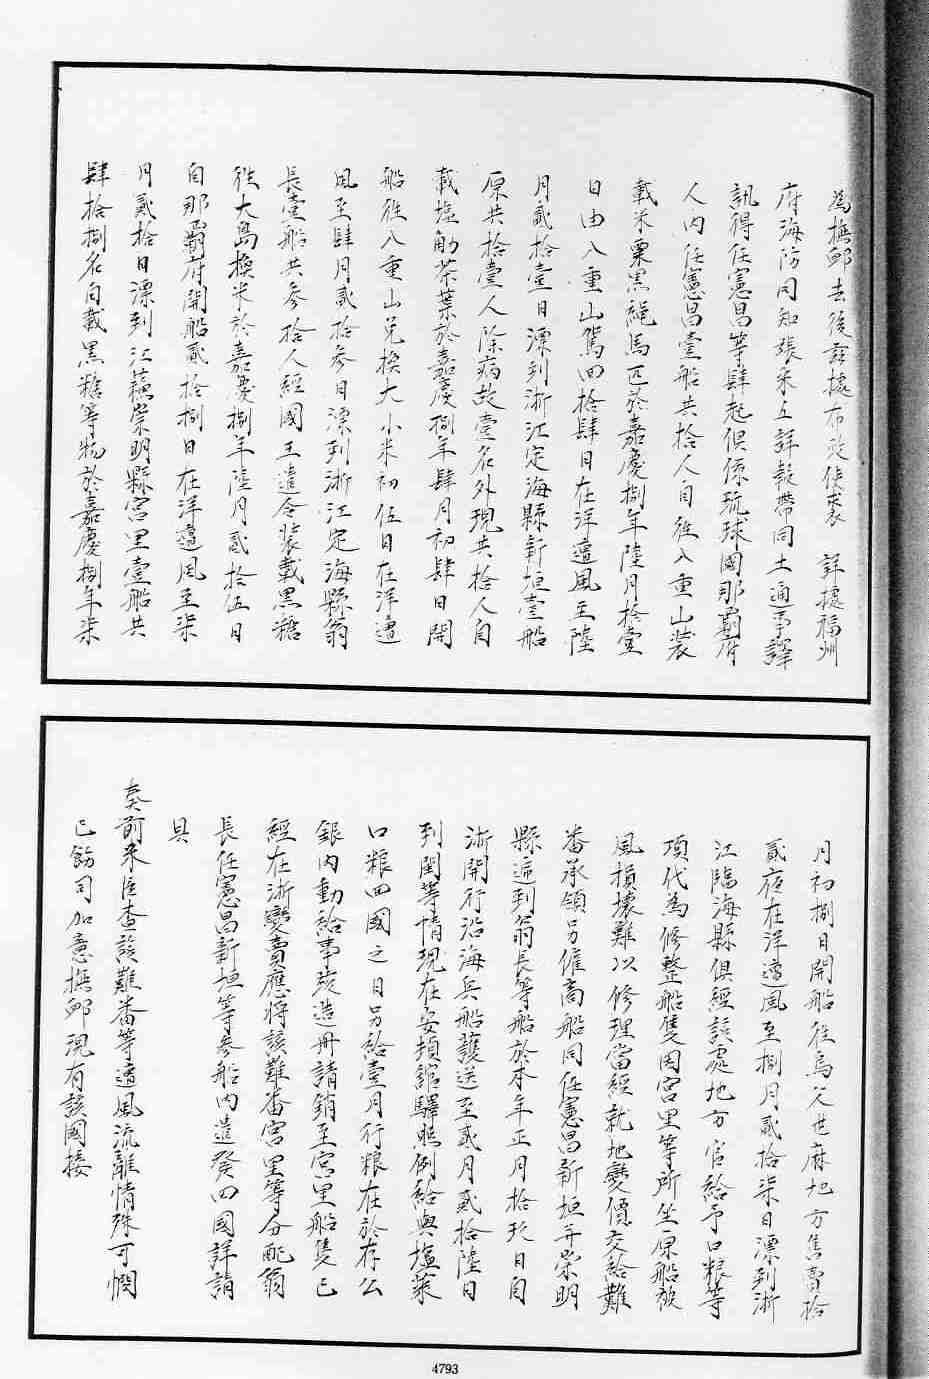 為撫卹去後茲據布政使裘　詳據福州
府海防同知張采五詳報帶同土通事譯
訊得任憲昌等肆起俱係琉球國那霸府
人內任憲昌壹船共拾人自往八重山裝
載米粟黑繩馬匹於嘉慶捌年陸月拾壹
日由八重山駕回拾肆日在洋遭風至陸
月貳拾壹日漂到浙江定海縣新垣壹船
原共拾壹人除病故壹名外現共拾人自
載塩觔茶葉於嘉慶捌年肆月初肆日開
船往八重山兌換大小米初伍日在洋遭
風至肆月貳拾參日漂到浙江定海縣翁
長壹船共參拾人經國王遣令裝載黑糖
往大島換米於嘉慶捌年陸月貳拾伍日
自那霸府開船貳拾捌日在洋遭風至柒
月貳拾日漂到江蘇崇明縣宮里壹船共
肆拾捌名自載黑糖等物於嘉慶捌年柒
月初捌日開船往烏父世麻地方售賣拾
貳夜在洋遭風至捌月貳拾柒日漂到浙
江臨海縣俱經該處地方官給予口粮等
項代為修整船隻因宮里等所坐原船被
風損壞難以修理當經就地變價交給難
番承領另僱商船同任憲昌新垣并崇明
縣遞到翁長等船於本年正月拾玖日自
浙開行沿海兵船護送至貳月貳拾陸日
到閩等情現在安頓舘驛照例給與塩菜
口粮回國之日另給壹月行粮在於存公
銀內動給事竣造冊請銷至宮里船隻已
經在浙變賣應將該難番宮里等分配翁
長任憲昌新垣等參船內遣發回國詳請
具
奏前來臣查該難番等遭風流離情殊可憫
已飭司加意撫卹現有該國接
4793